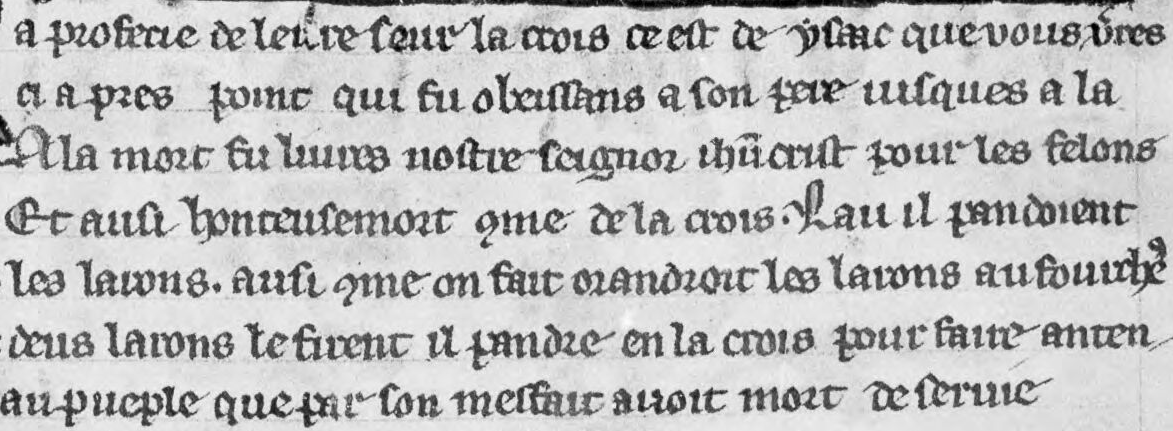 a profecie de leure seur la crois ce est de ysaac que vous ur̄es
ci a pres point qui fu obeissans a son pere iusques a la
A la mort fu liures nostre seignor ihū crist pour les felons
Et ausi honteuse mort ꝯme de la crois. La u il pandoient
les larons. ausi ꝯme on fait orandroit les larons au fourchꝰ
deus larons le firent il pandre en la crois pour faire anten
au pueple que par son messait auoit mort deseruie